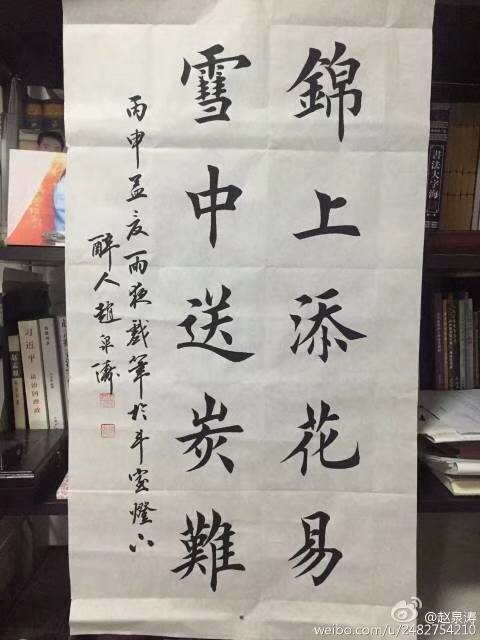 錦上添花易
雪中送炭難
丙申孟夏雨夜戲筆於斗室燈下
醉人趙泉濤
書法大字海
习近平
谈治国理政
@赵泉涛
weibo.com/u/2482754210